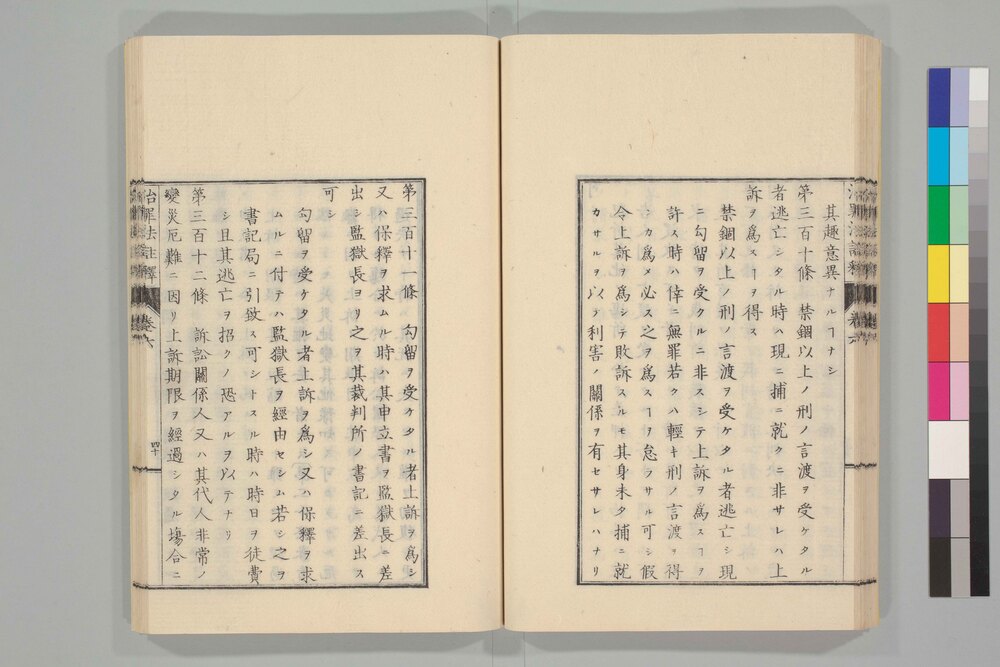 其趣意異ナルヿナシ
第三百十條　禁錮以上ノ刑ノ言渡ヲ受ケタル
者逃亡シタル時ハ現ニ捕ニ就クニ非サレハ上
訴ヲ爲スヿヲ得ス
禁錮以上ノ刑ノ言渡ヲ受ケタル者逃亡シ現
ニ勾留ヲ受クルニ非スシテ上訴ヲ爲スヿヲ
許ス時ハ倖ニ無罪若クハ輕キ刑ノ言渡ヲ得
ンカ爲メ必ス之ヲ爲スヿヲ怠ラサル可シ假
令上訴ヲ爲シテ敗訴スルモ其身未タ捕ニ就
カサルヲ以テ利害ノ關係ヲ有セサレハナリ
第三百十一條　勾留ヲ受ケタル者上訴ヲ爲シ
又ハ保釋ヲ求ムル時ハ其申立書ヲ監獄長ニ差
出シ監獄長ヨリ之ヲ其裁判所ノ書記ニ差出ス
可シ
勾留ヲ受ケタル者上訴ヲ爲シ又ハ保釋ヲ求
ムルニ付テハ監獄長ヲ經由セシム若シ之ヲ
書記局ニ引致ス可シトスル時ハ時日ヲ徒費
シ且其逃亡ヲ招クノ恐アルヲ以テナリ
第三百十二條　訴訟關係人又ハ其代人非常ノ
變災厄難ニ因リ上訴期限ヲ經過シタル塲合ニ
治罪法註釋　卷六
四十